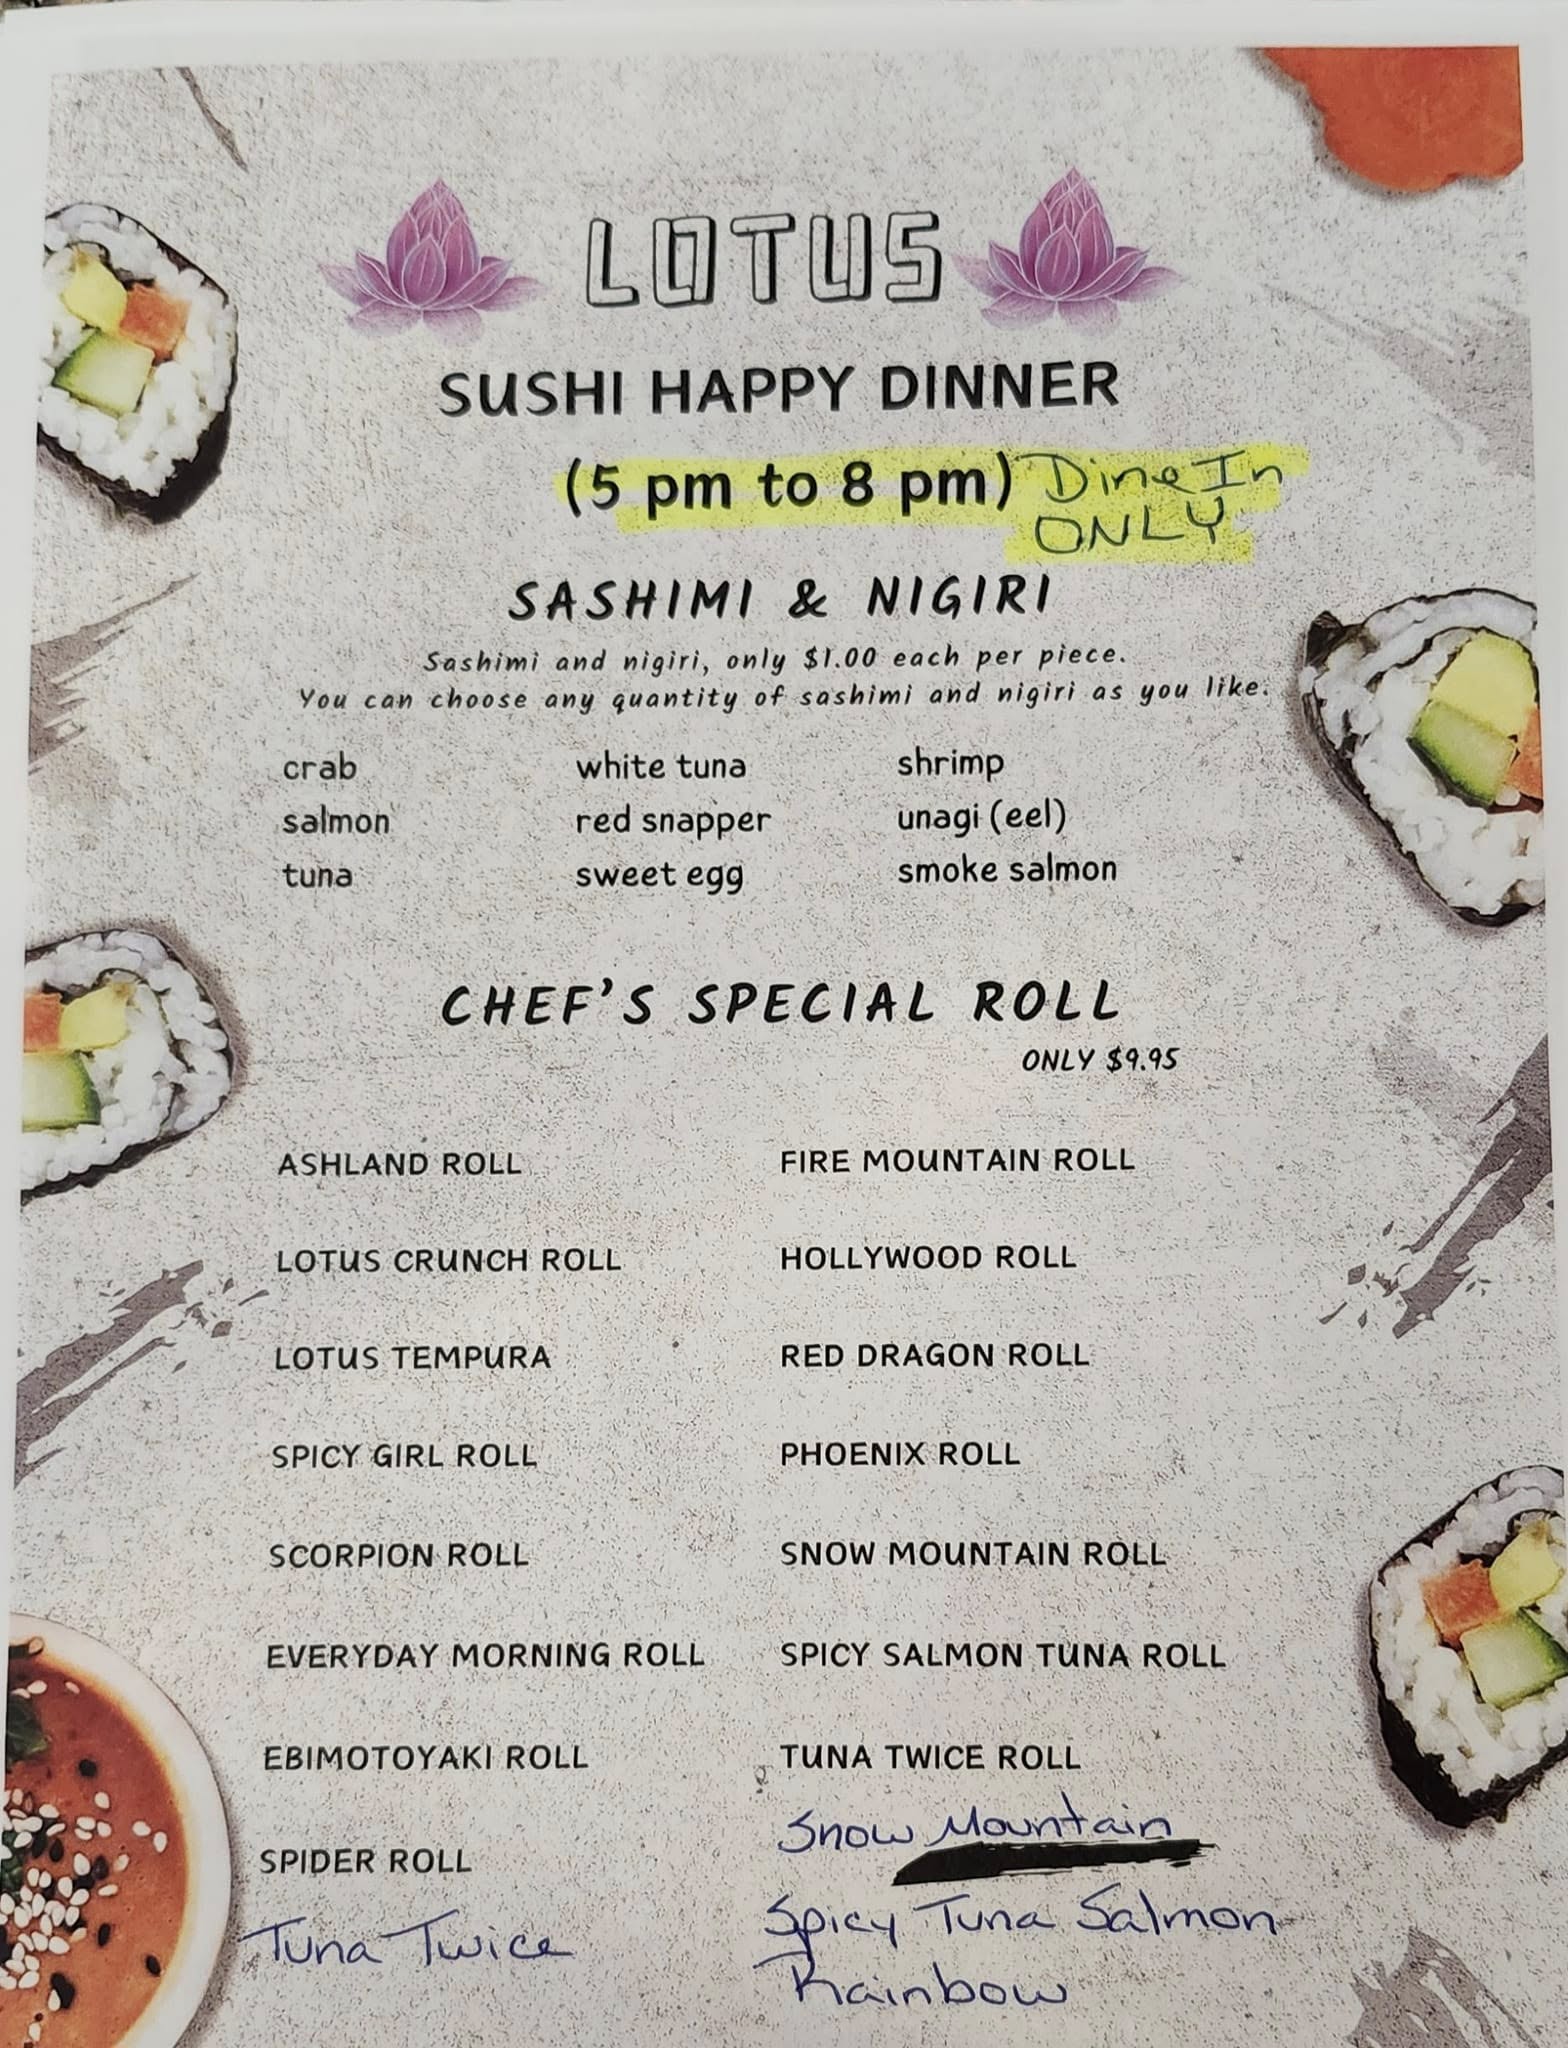 LOTUS
SUSHI HAPPY DINNER
(5 pm to 8 pm) Dine In
ONLY
SASHIMI & NIGIRI
Sashimi and nigiri, only $1.00 each per piece.
You can choose any quantity of sashimi and nigiri as you like.
crab white tuna shrimp
salmon red snapper unagi (eel)
tuna sweet egg smoke salmon
CHEF'S SPECIAL ROLL
ONLY $9.95
ASHLAND ROLL FIRE MOUNTAIN ROLL
LOTUS CRUNCH ROLL HOLLYWOOD ROLL
LOTUS TEMPURA RED DRAGON ROLL
SPICY GIRL ROLL PHOENIX ROLL
SCORPION ROLL SNOW MOUNTAIN ROLL
EVERYDAY MORNING ROLL SPICY SALMON TUNA ROLL
EBIMOTOYAKI ROLL TUNA TWICE ROLL
SPIDER ROLL Snow Mountain
Tuna Twice Spicy Tuna Salmon
Rainbow